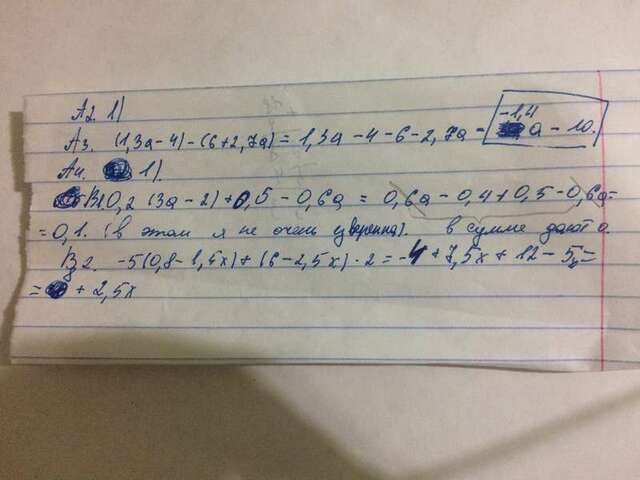 A2. 1)
A3. (1,3a-4)-(6+2,7a)=1,3a-4-6-2,7a = -1,4a-10.
A4. 1).
B1. 0,2(3a-2)+0,5-0,6a = 0,6a-0,4+0,5-0,6a=
=0,1. (в этом я не очень уверенна). в сумме дают 0.
B2. -5(0,8-1,5x)+(6-2,5x)·2=-4+7,5x+12-5x=
= +2,5x